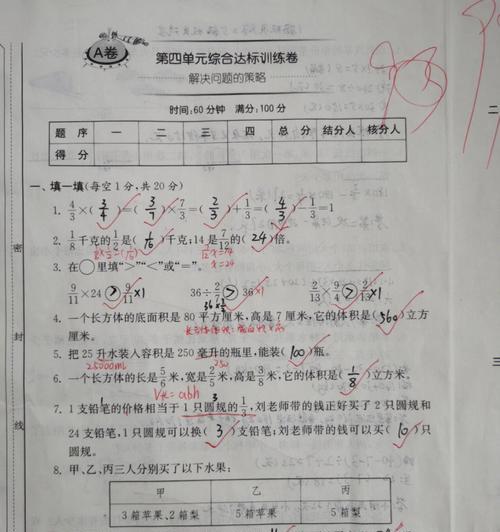 A卷
第四单元综合达标训练卷
解决问题的策略
时间:60分钟 满分:100分
题序 一 二 三 四 总分 结分人 核分人
得分
一、填一填(每空1分,共20分)
1. 4/3×(3/4)=(3/7)×7/3=(2/3)+1/3=(4/3)-1/3=1
2. 1/8千克的1/2是(1/16)千克;14是7/12的(24)倍。
3. 在○里填“>”“<”或“=”。
9/11×24>9/11×1 36÷2/3>36×1 2/13×9/4>2/13×1
4. 一个长方体的底面积是80平方厘米,高是7厘米,它的体积是(560)立方
厘米。
5. 把25升水装入容积是250毫升的瓶里,能装(100)瓶。
25000ml 250
6. 一个长方体的长是5/6米,宽是2/5米,高是3/8米,它的体积是(1/8)立方米。
V长=abh
7. 1支铅笔的价格相当于1只圆规的1/3,刘老师带的钱正好买了2只圆规和
24支铅笔,1只圆规可以换(3)支铅笔;刘老师带的钱可以买(10)只
圆规。
8. 甲、乙、丙三人分别买了以下水果:
甲 乙 丙
3箱苹果、2箱梨 5箱苹果 5箱梨
密
封
线
二
三